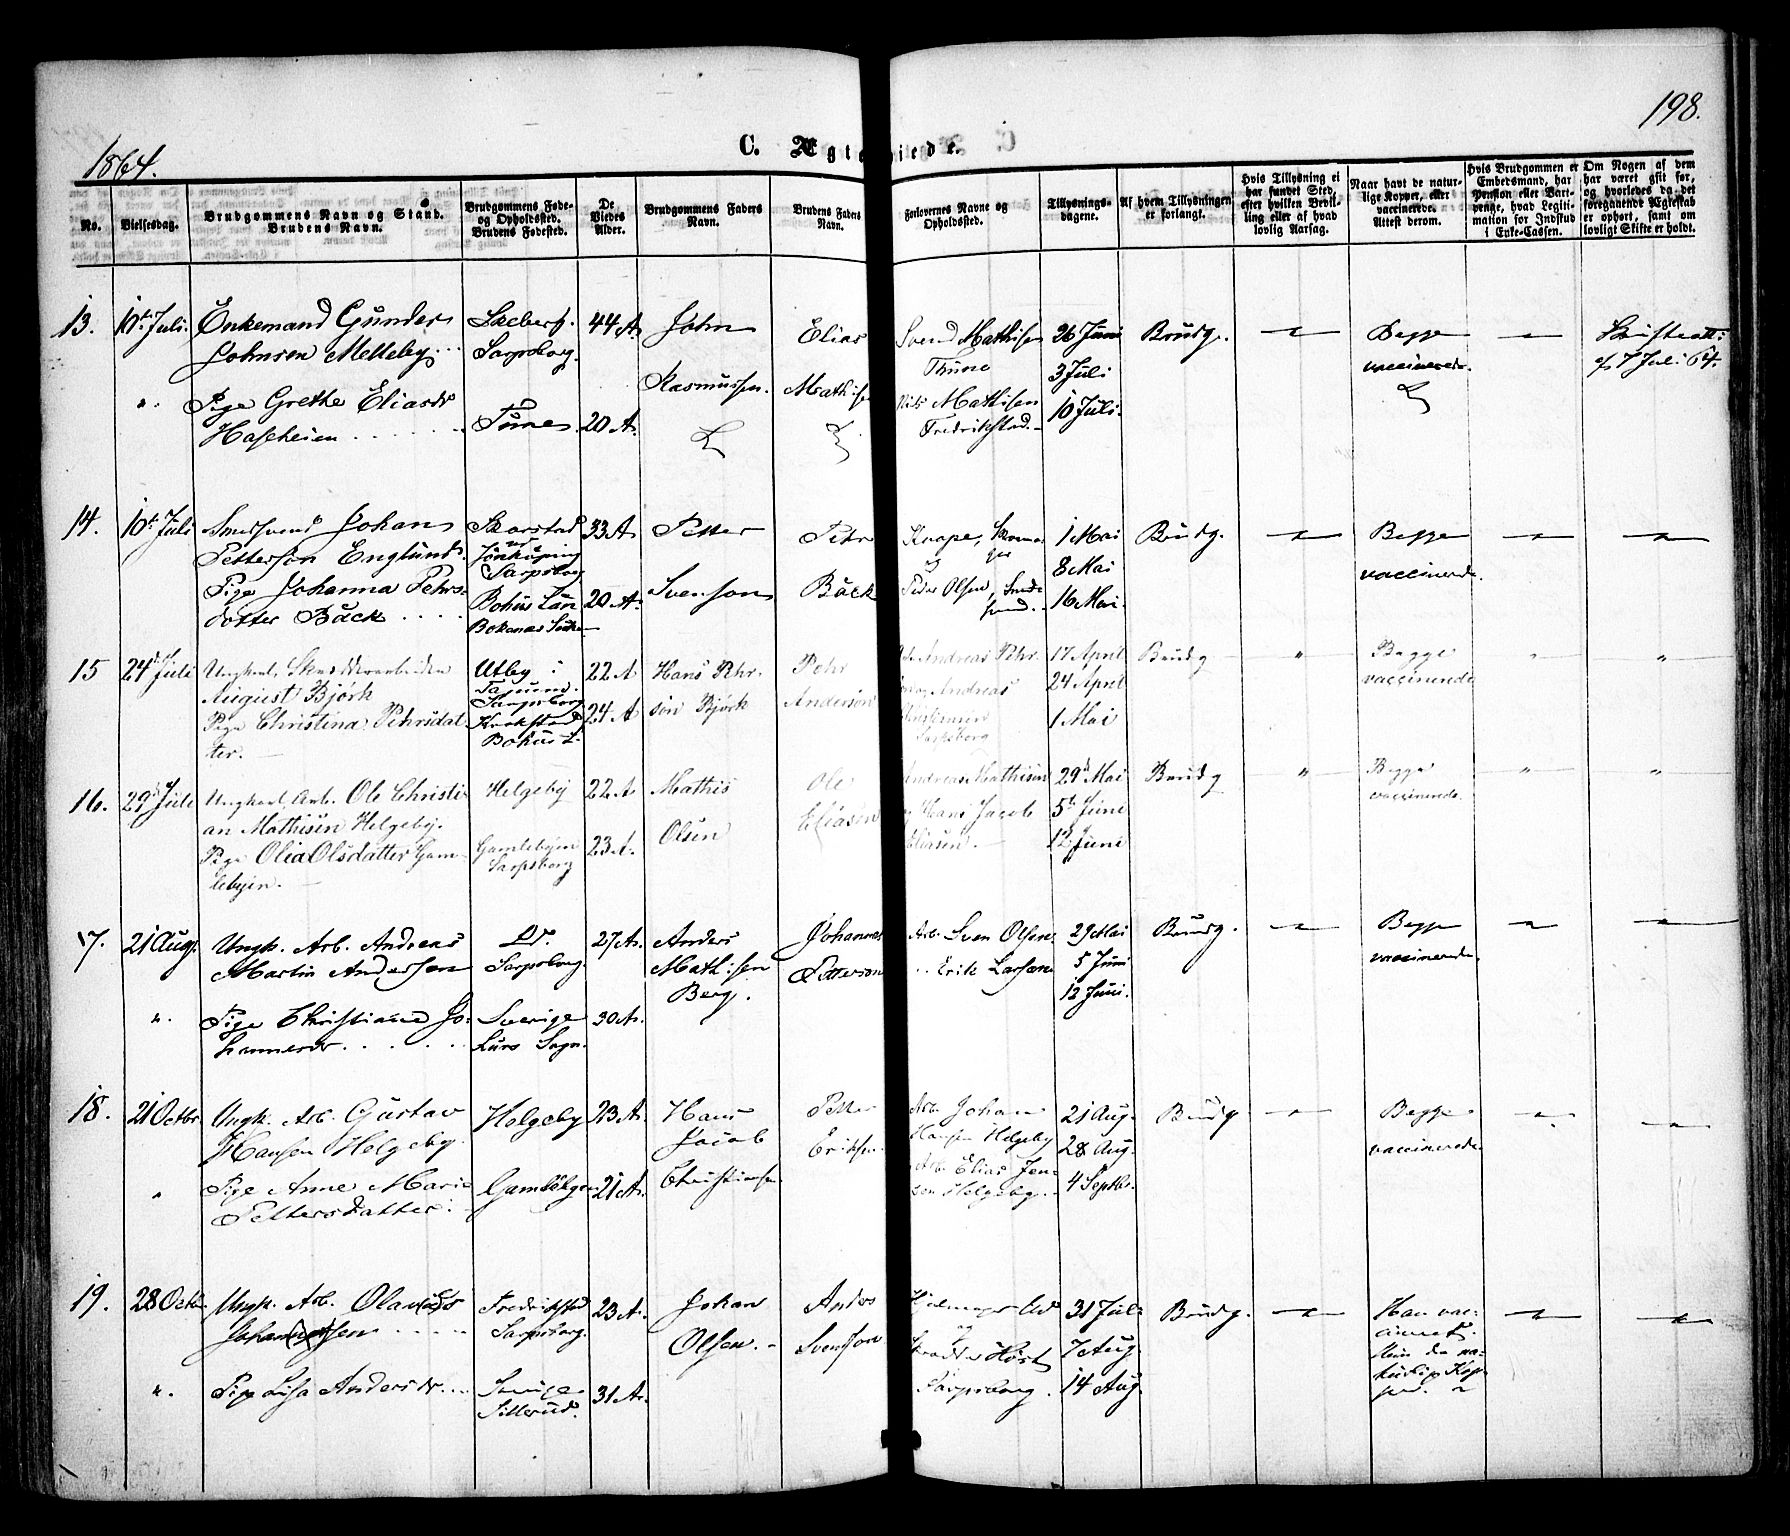 198.
1864.
C. Ægteviede.
No.
Vielsesdag.
Brudgommens Navn og Stand.
Brudens Navn.
Brudgommens Føde- og Opholdssted.
Brudens Fødested.
De Viedes Alder.
Brudgommens Faders Navn.
Brudens Faders Navn.
Forlovernes Navne og Opholdssted.
Tillysnings-dagene.
Af hvem Tillysningen er forlangt.
Hvis Tillysning ei har fundet Sted, efter hvilken Bevilling eller af hvad lovlig Aarsag.
Naar havt de naturlige Kopper, eller vaccinerede. Attest derom.
Hvis Brudgommen er Embedsmand, har Pension eller Vartpenge, hvad Legitimation for Indskud i Enke-Cassen.
Om Nogen af dem har været gift før, og hvorledes da det foregaaende Ægteskab er ophørt, samt om lovligt Skifte er holdt.
13. 10de Juli. Enkemand Gunder Skeberg. 44 A. John Elias Svend Mathisen 26 Juni Brudg. Begge Skifteatt:
Johnsen Melleby Sarpsborg. Thune 3 Juli vaccinerede. af 7 Juli 64.
". Pige Grethe Eliasdr Tune 20 A. Rasmussen. Mathisen Nils Mathisen 10 Juli.
Hafsheien . . . . . . Fredrikstad.
14. 10de Juli Smedsvend Johan Skarstad 33 A Petter Pehr Knape, Skoma- 1 Mai Brudg. Begge
Petterson Englund. ved Jönköping og 8 Mai vaccinerede.
Sarpsborg
Pige Johanna Pehrs- Bohus Län 20 A. Svenson Bäck Peder Olsen, Smed- 16 Mai.
dotter Bäck . . . . Bokenäs Sokn svend.
15 24de Juli Ungkarl, Skrædderarbeider Utby i 22 A Hans Pehr- Pehr Andreas Pehr- 17 April Brudg " Begge " "
August Björk Sarpsborg 24 April vaccinerede
Pige Christina Pehrsdat- Krokstad 24 A søn Björk Anderson Andreas 1 Mai
ter. Bohus L. Christensen
Sarpsborg
16. 29de Juli Ungkarl, Arb. Ole Christi- Helgeby 22 A Mathis Ole Andreas Mathisen 29de Mai Brudg " Begge " "
an Mathisen Helgeby. Hans Jacob 5te Juni vaccinerede.
Pige Olia Olsdatter Gam- Gamlebyen 23 A. Olsen Eliasen Eliasen. 12 Juni
lebyen. Sarpsborg
17. 21 Aug. Ungk. Arb. Andreas 27 A. Anders Johannes Arb. Sven Olsen 29 Mai Brudg. Begge
Martin Andersen Sarpsborg. Mathisen Petterson " Erik Larsen 5 Juni vaccinerede.
Berg. 12 Juni.
". Pige Christiane Jo- Sverige 30 A.
hannesdr . . . . . . Lurs Sogn.
18. 21 Octbr. Ungk. Arb. Gustav Helgeby 23 A. Hans Petter Arb. Johan 21 Aug. Brudg Begge
Hansen Helgeby. Jacob Eriksen Hansen Helgeby 28 Aug. vaccinerede.
" Pige Anne Marie Gamlebyen 21 A. Christiansen Arb. Elias Jen- 4 Septbr.
Pettersdatter. sen Helgeby.
19. 28 Octbr. Ungk. Arb. Olavus Fredrikstad 23 A. Johan Anders 31 Juli Brudg. Han vac-
Johansen . . . . Sarpsborg. Olsen. Svenson og 7 Aug. cineret.
Skrædder Höst Hun de na-
". Pige Lisa Andersdr. Sverige 31 A. Sarpsborg. 14 Aug. turlige Kop-
Sillerud. per.